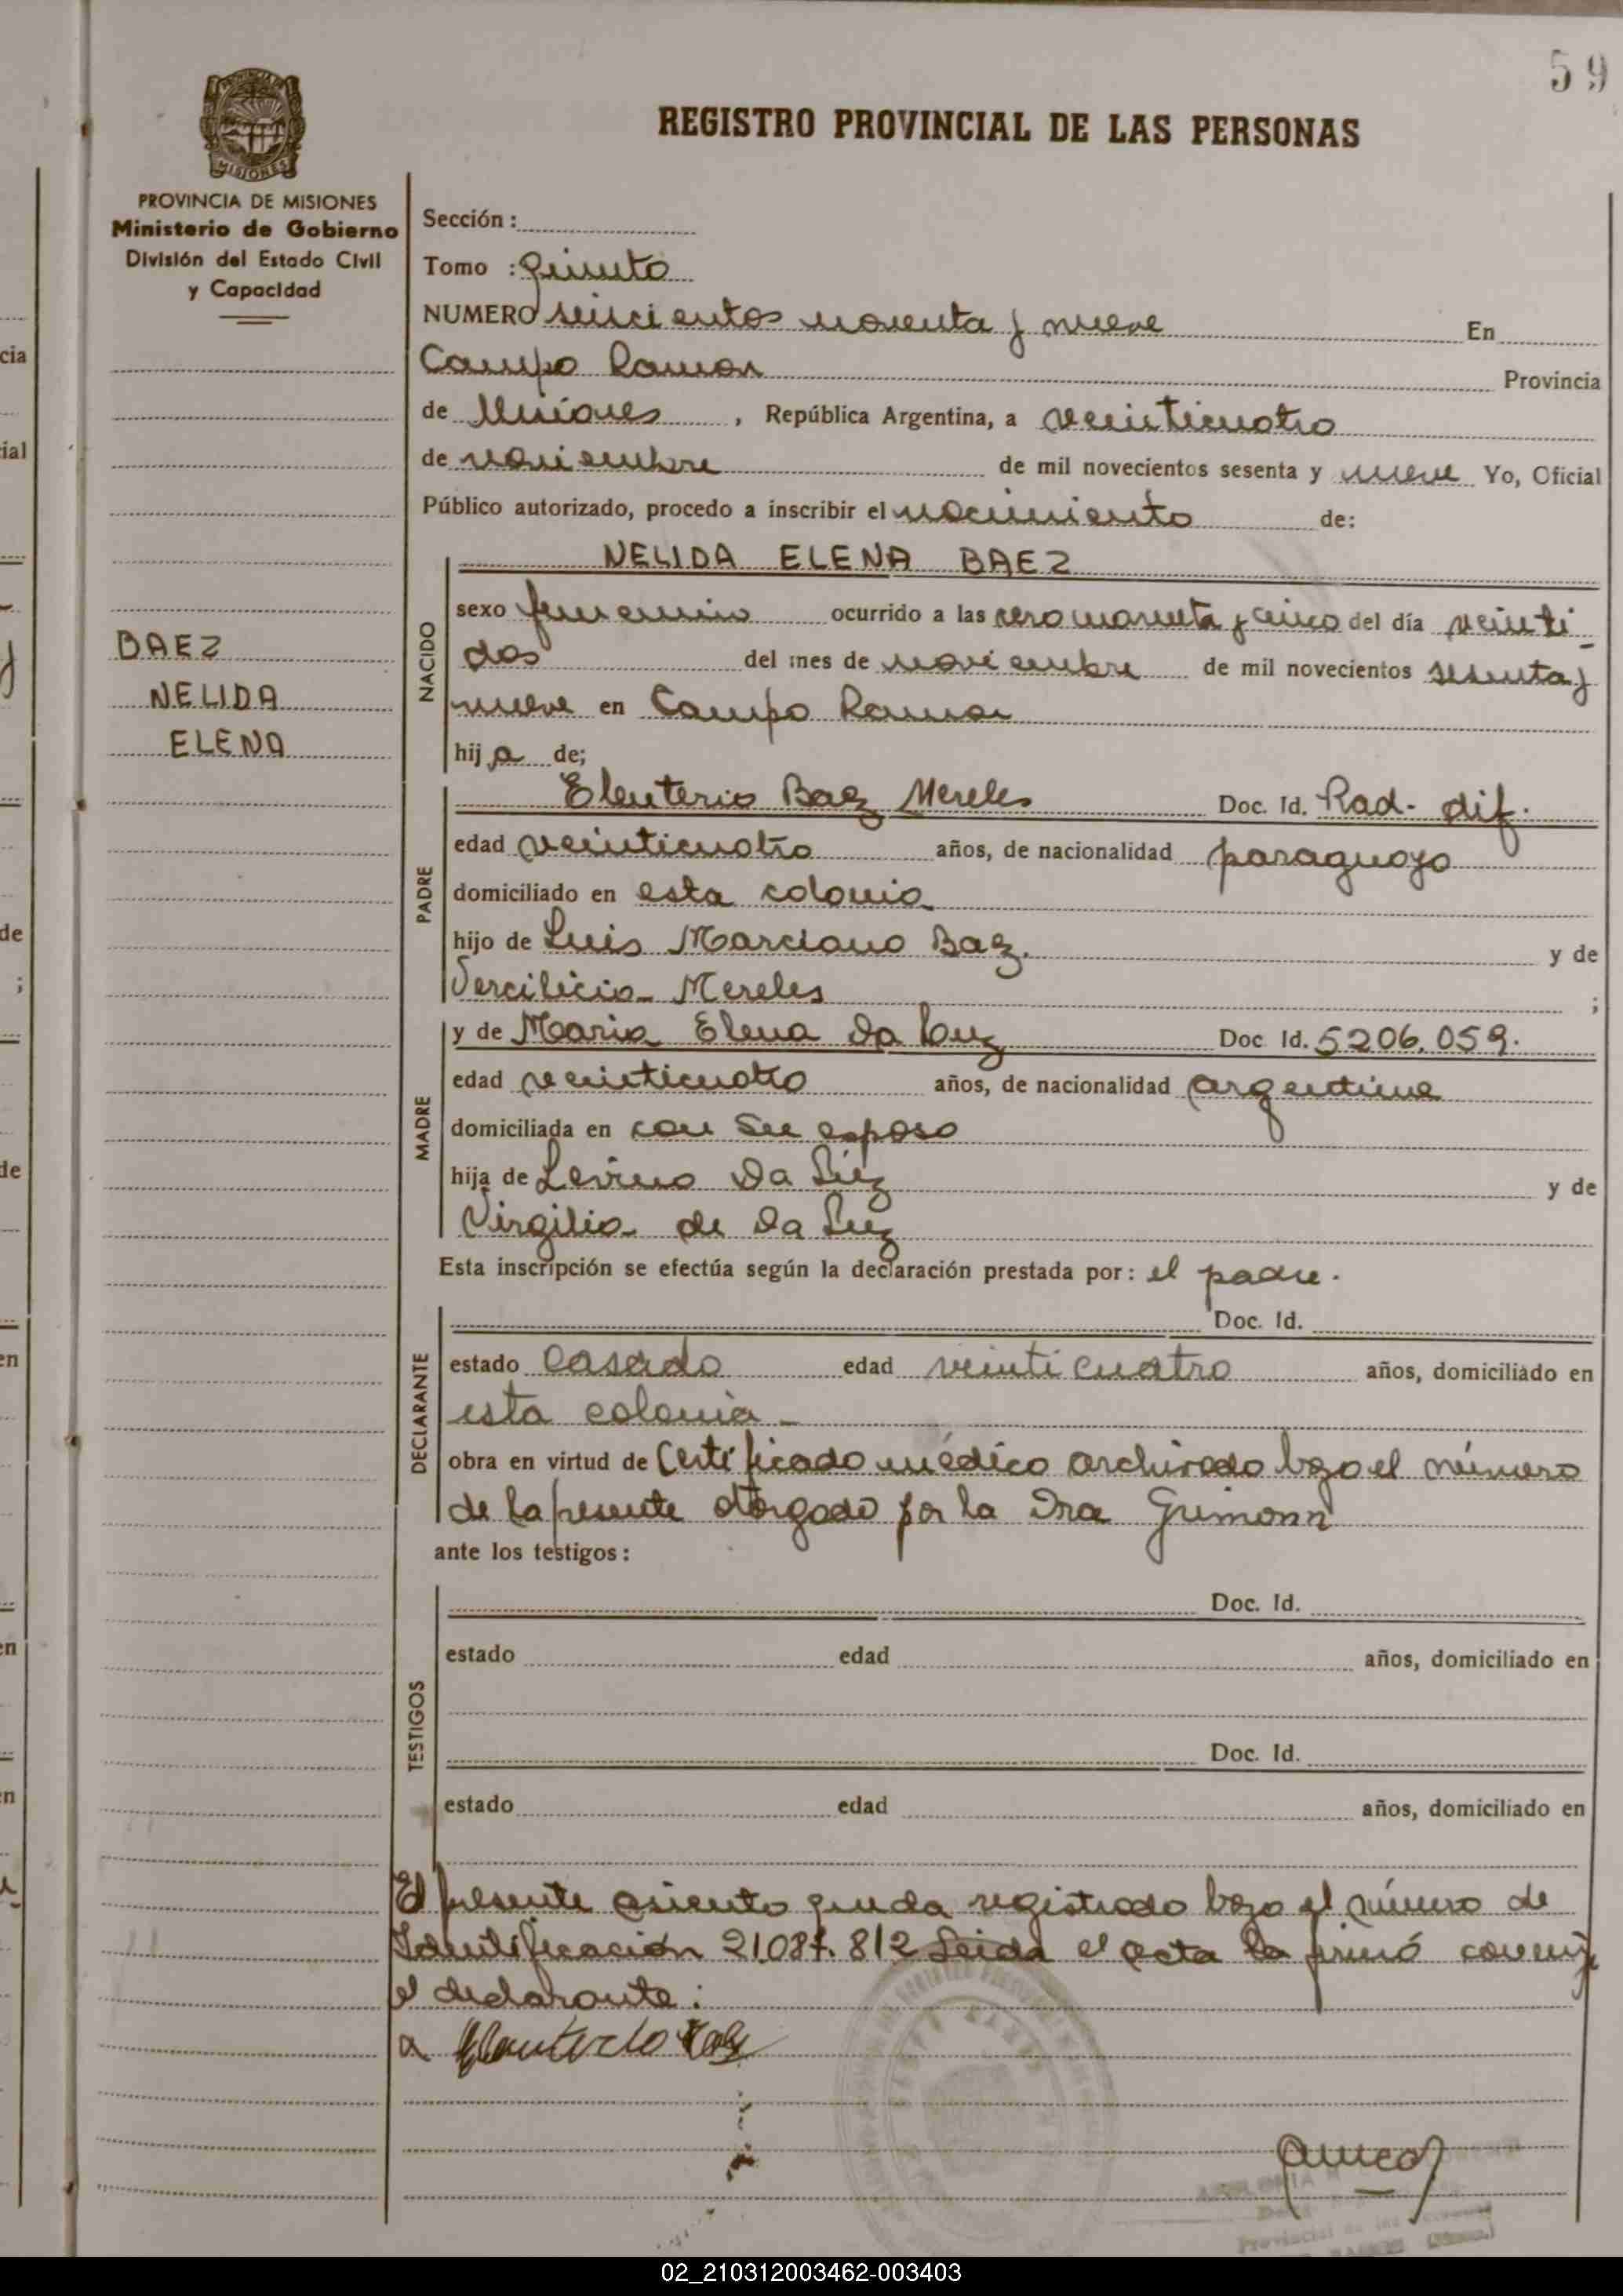 59
REGISTRO PROVINCIAL DE LAS PERSONAS
MISIONES
PROVINCIA DE MISIONES
Ministerio de Gobierno
División del Estado Civil
y Capacidad
BAEZ
NELIDA
ELENA
Sección :
Tomo : Quinto
NUMERO seiscientos noventa y nueve En
Campo Ramon Provincia
de Misiones , República Argentina, a veinticuatro
de noviembre de mil novecientos sesenta y nueve Yo, Oficial
Público autorizado, procedo a inscribir el nacimiento de:
NACIDO
NELIDA ELENA BAEZ
sexo femenino ocurrido a las cero cuarenta y cinco del día veinti
dos del mes de noviembre de mil novecientos sesenta y
nueve en Campo Ramon
hij a de;
PADRE
Eleuterio Baez Mereles Doc. Id. Rad. dif.
edad veinticuatro años, de nacionalidad paraguayo
domiciliado en esta colonia
hijo de Luis Marciano Baez. y de
Mereles ;
MADRE
y de Maria Elena Da Luz Doc Id. 5206.059.
edad veinticuatro años, de nacionalidad argentina
domiciliada en con su esposo
hija de Levino Da Luz y de
Virgilia de Da Luz
Esta inscripción se efectúa según la declaración prestada por: el padre.
DECLARANTE
Doc. Id.
estado casado edad veinticuatro años, domiciliado en
esta colonia
obra en virtud de Certificado médico archivado bajo el número
de la presente otorgado por la Dra Grimonn
ante los testigos:
TESTIGOS
Doc. Id.
estado edad años, domiciliado en
Doc. Id.
estado edad años, domiciliado en
El presente asiento queda registrado bajo el número de
Identificación 21.087.812 Leida el acta la firmó conmigo
el declarante:
02_210312003462-003403